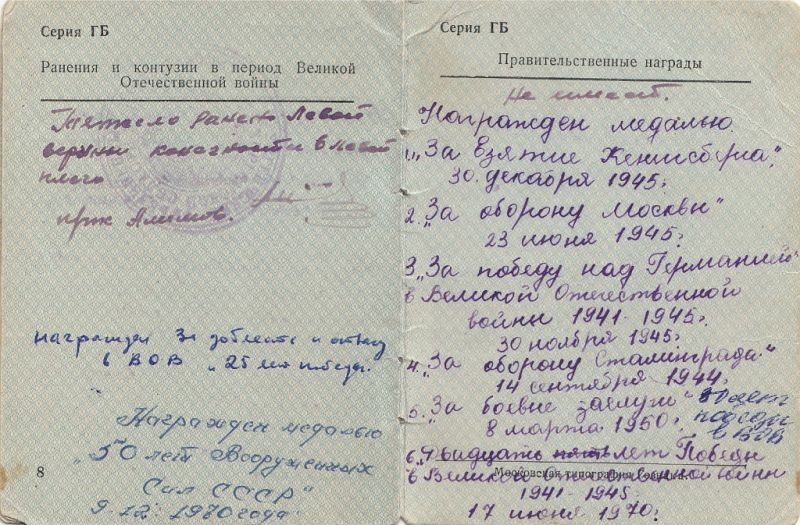 Серия ГБ
Ранения и контузии в период Великой
Отечественной войны
Тяжело ранен Левой
верхни конечности в левой
плечо
награжден За доблесть и отвагу
в ВОВ „25 лет победы.
Награжден медалью
„50 лет Вооруженных
Сил СССР"
9.12.1970 года
8
Серия ГБ
Правительственные награды
Не имеет.
Награжден медалью
1. „За Взятие Кенигсберга",
30. декабря 1945г.
2. „За оборону Москвы"
23 июня 1945г.
3 „За победу над Германией"
в Великой Отечественной
войны 1941-1945г.
30 ноября 1945г.
4. „За оборону Сталинграда."
14 сентября 1944г.
5. „За боевые заслуги"
8 марта 1950г.
лет
победы
в ВОВ
6. Двадцать пять лет Победы
Московская типография
в Великой Отечественной войны
1941-1945
17 июня 1970г.